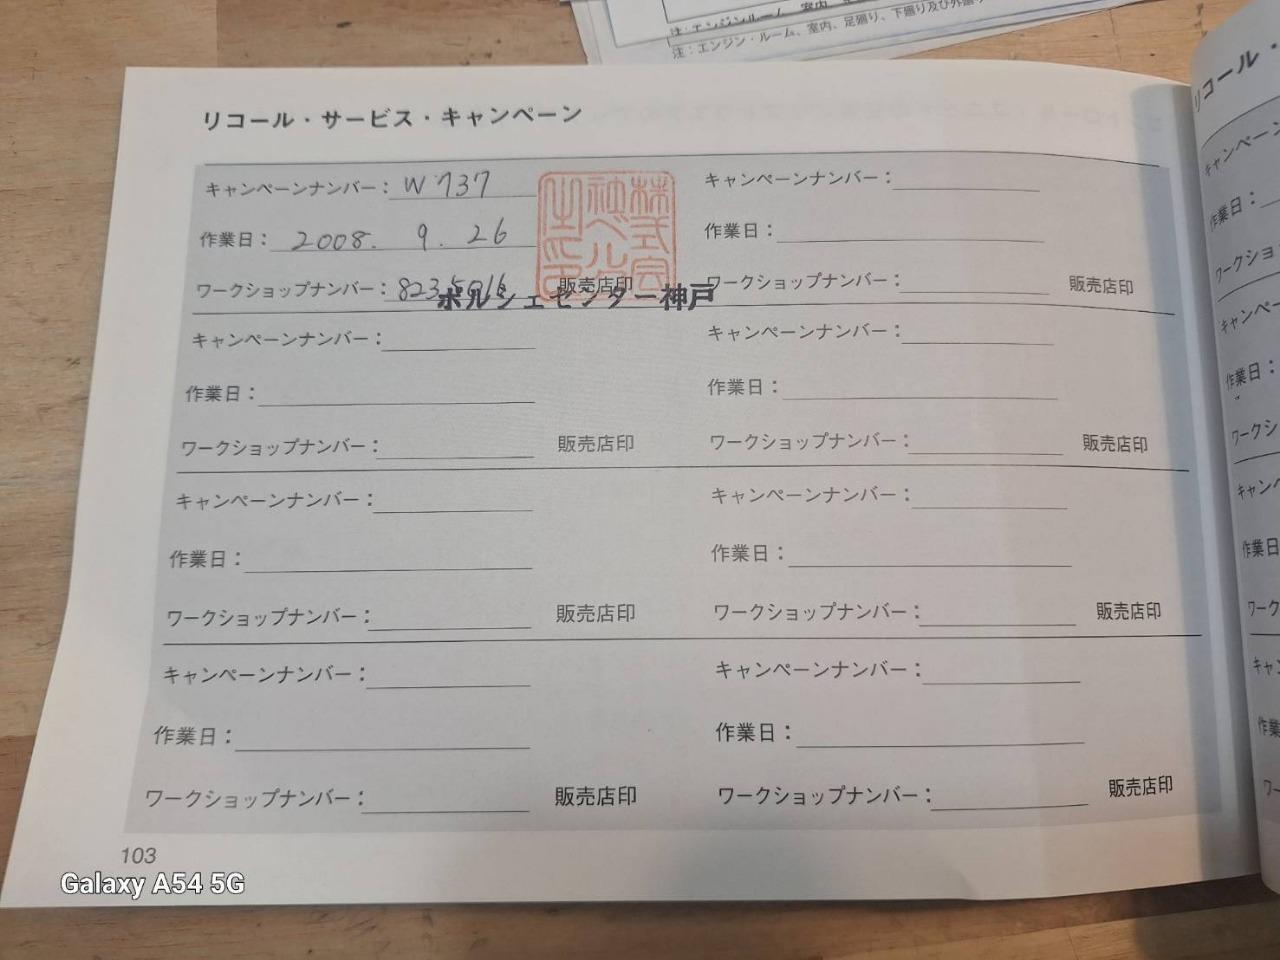 注：エンジン・ルーム、室内、足廻り、下廻り及び外廻り
リコール・サービス・キャンペーン
キャンペーンナンバー：W737
作業日：2008. 9. 26
ワークショップナンバー： 販売店印
ポルシェセンター神戸
株式会社
キャンペーンナンバー：
作業日：
ワークショップナンバー： 販売店印
キャンペーンナンバー：
作業日：
ワークショップナンバー： 販売店印
キャンペーンナンバー：
作業日：
ワークショップナンバー： 販売店印
キャンペーンナンバー：
作業日：
ワークショップナンバー： 販売店印
キャンペーンナンバー：
作業日：
ワークショップナンバー： 販売店印
キャンペーンナンバー：
作業日：
ワークショップナンバー： 販売店印
キャンペーンナンバー：
作業日：
ワークショップナンバー： 販売店印
103
リコール・
キャンペーン
作業日：
ワークショ
キャンペー
作業日：
ワークシ
キャンペ
作業日
ワーク
Galaxy A54 5G